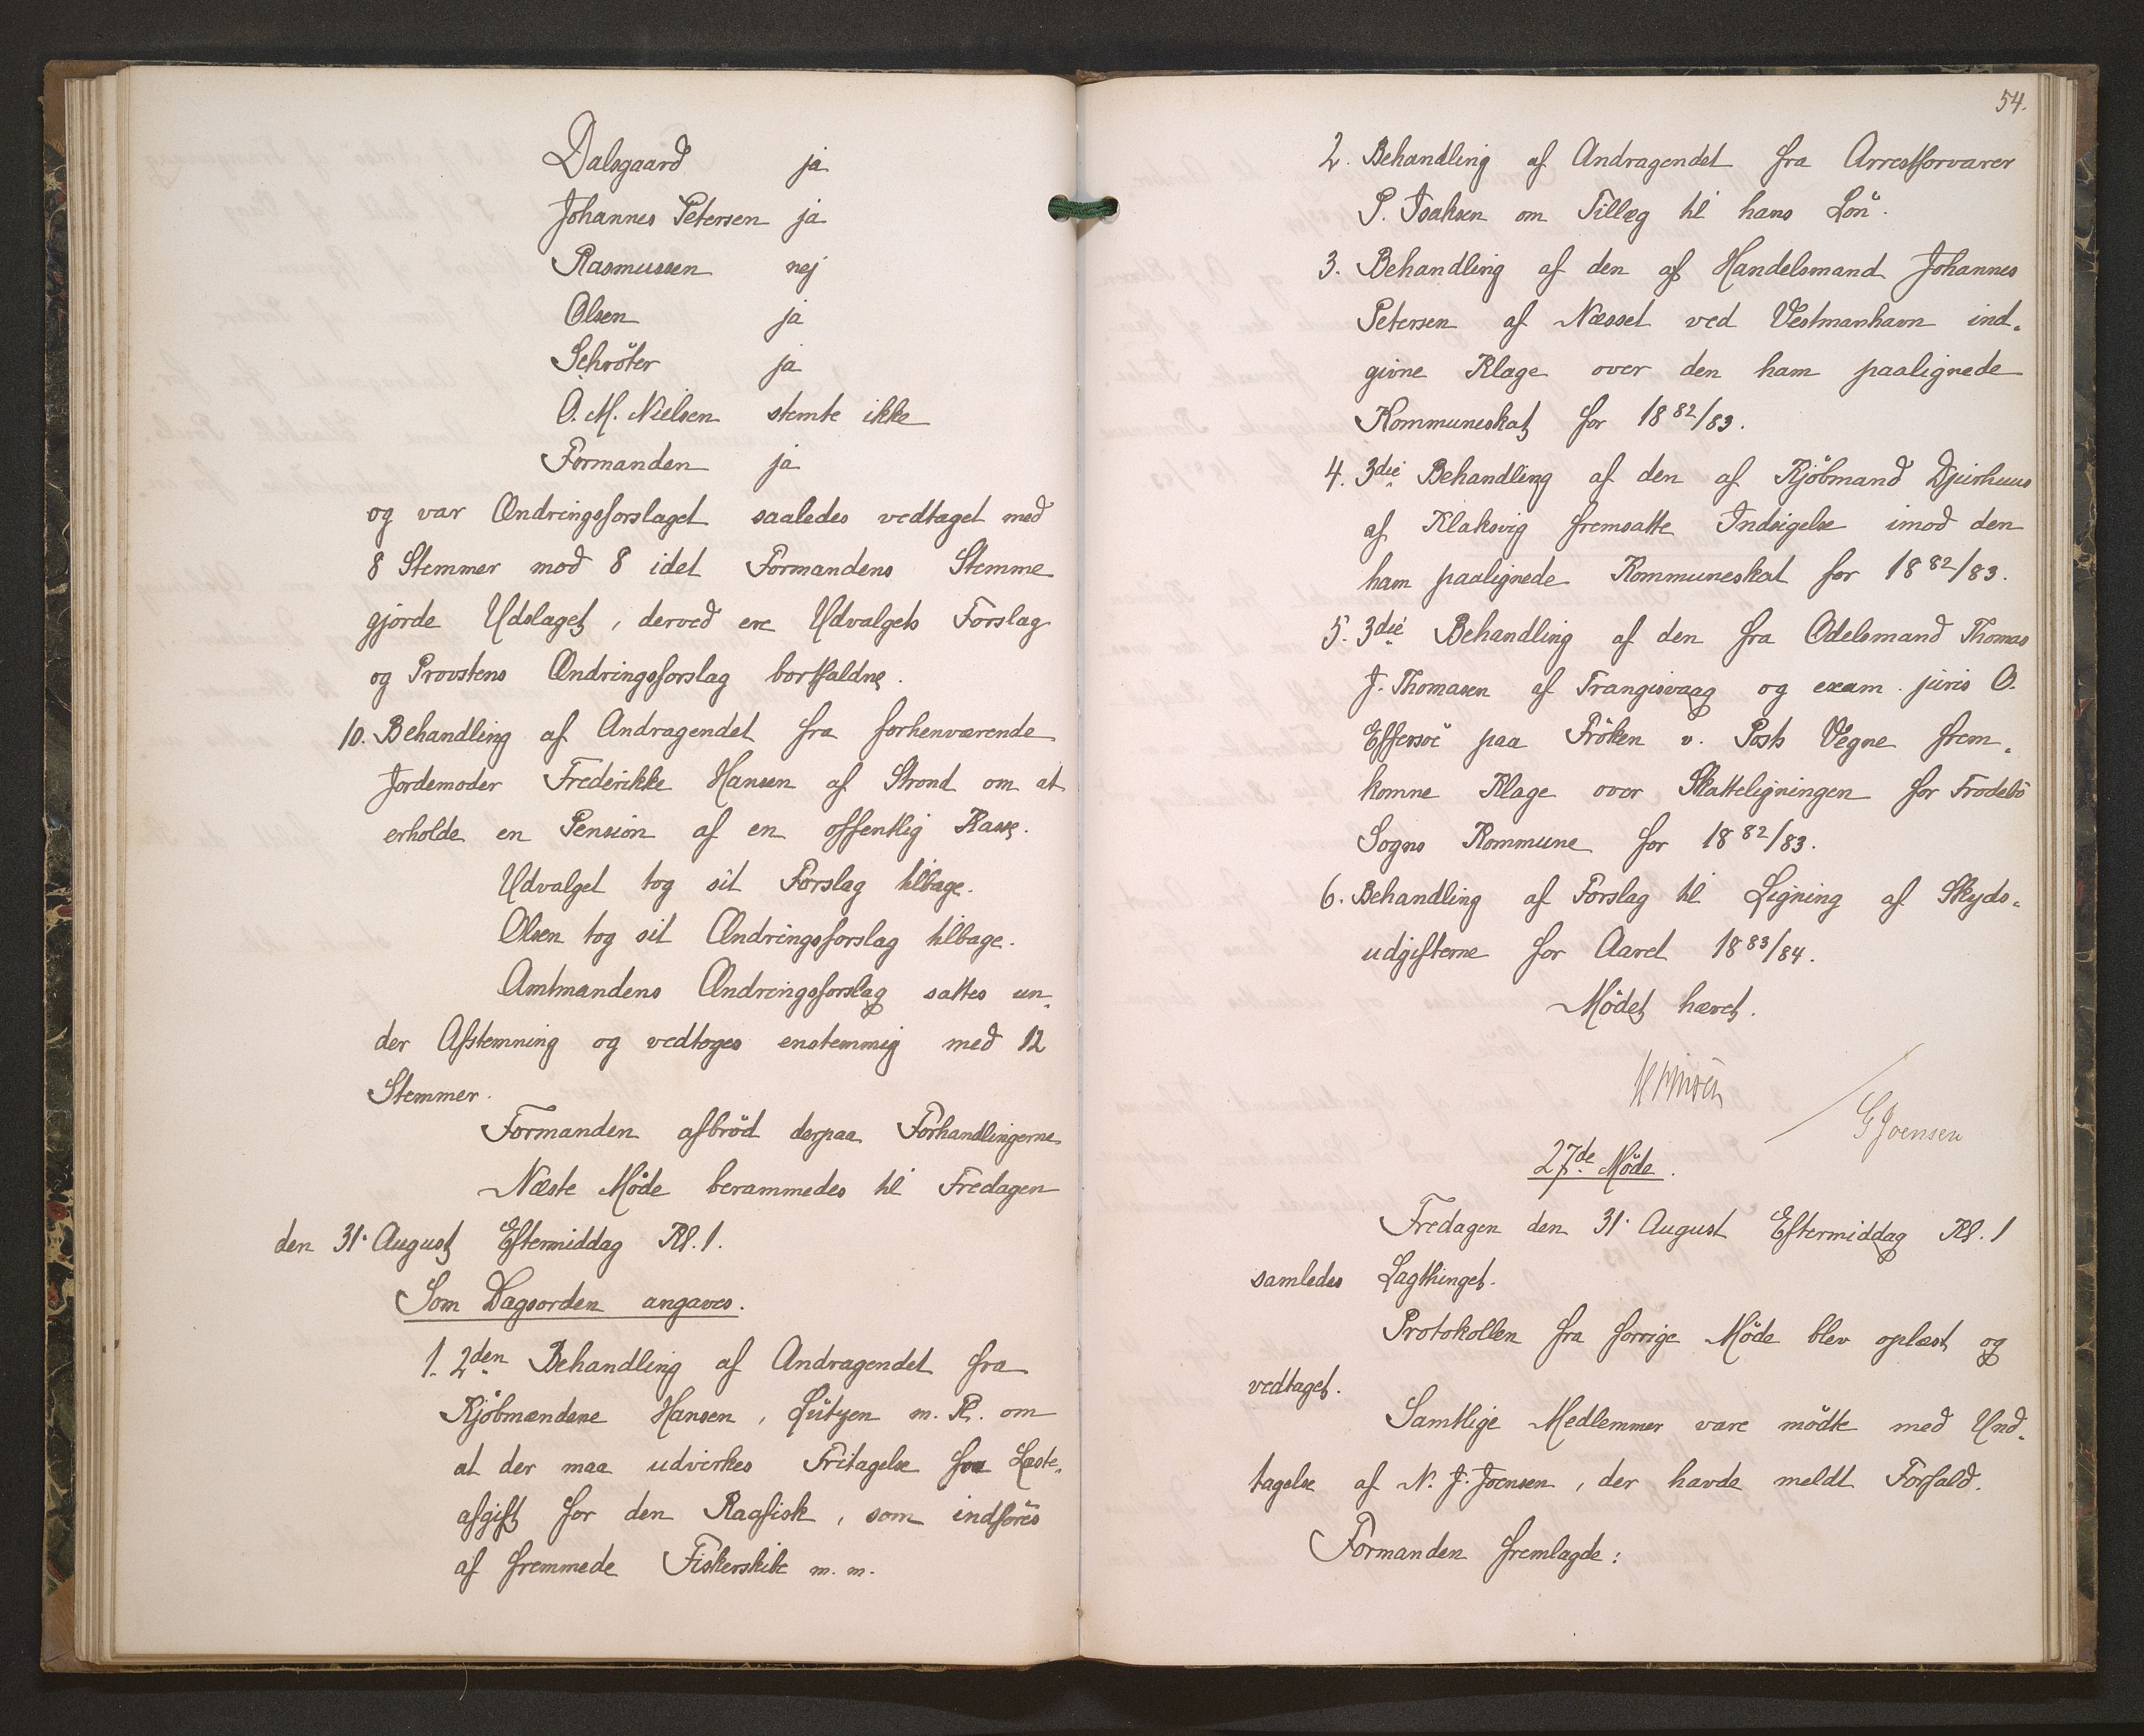 Dalsgaard ja
Johannes Petersen ja
Rasmussen nej
Olsen ja
Schröter ja
O. M. Nielsen stemte ikke
Formanden ja
og var Ændringsforslaget saaledes vedtaget med
8 Stemmer mod 8 idet Formandens Stemme
gjorde Udslaget, derved ere Udvalgets Forslag
og Provstens Ændringsforslag bortfaldne.
10. Behandling af Andragendet fra forhenværende
Jordemoder Frederikke Hansen af Strond om at
erholde en Pension af en offentlig Kasse.
Udvalget tog sit Forslag tilbage.
Olsen tog sit Ændringsforslag tilbage.
Amtmandens Ændringsforslag sattes un-
der Afstemning og vedtoges enstemmig med 12
Stemmer.
Formanden afbröd derpaa Forhandlingerne
Næste Möde berammedes til Fredagen
den 31. August Eftermiddag Kl. 1.
Som Dagsorden angaves.
1. 2den Behandling af Andragendet fra
Kjöbmændene Hansen, Lützen m. Fl. om
at der maa udvirkes Fritagelse fra Læste-
afgift for den Raafisk, som indföres
af fremmede Fiskerskibe m. m.
54.
2. Behandling af Andragendet fra Arrestforvarer
P. Isaksen om Tillæg til hans Lön.
3. Behandling af den af Handelsmand Johannes
Petersen af Næsset ved Vestmanhavn ind-
givne Klage over den ham paalignede
Kommuneskat for 1882/83.
4. 3die Behandling af den af Kjöbmand Djurhuus
af Klaksvig fremsatte Indsigelse imod den
ham paalignede Kommuneskat for 1882/83.
5. 3die Behandling af den fra Odelsmand Thomas
J. Thomasen af Trangisvaag og exam. juris O.
Effersöe paa Fröken v. Posts Vegne frem-
komne Klage over Skatteligningen for Frodebö
Sogns Kommune for 1882/83.
6. Behandling af Forslag til Ligning af Skyds-
udgifterne for Aaret 1883/84.
Mödet hævet.
G Joensen
27de Möde.
Fredagen den 31. August Eftermiddag Kl. 1
samledes Lagthinget.
Protokollen fra forrige Möde blev oplæst og
vedtaget.
Samtlige Medlemmer vare mödte med Und-
tagelse af N. J. Joensen, der havde meldt Forfald.
Formanden fremlagde: